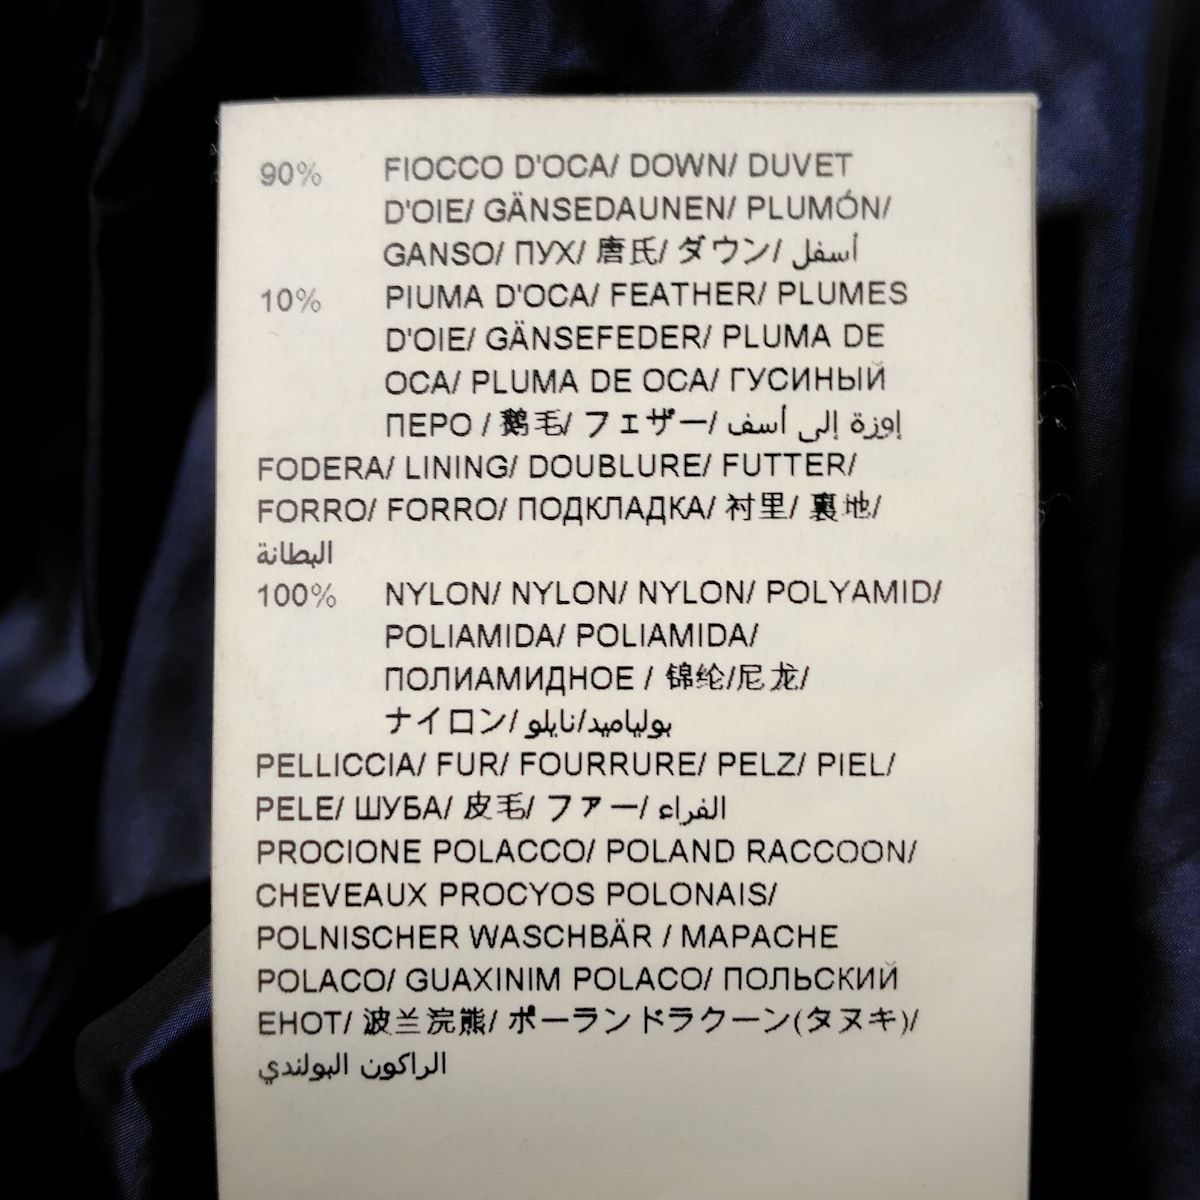 90% FIOCCO D'OCA/ DOWN/ DUVET
D'OIE/ GÄNSEDAUNEN/ PLUMÓN/
GANSO/ ПУХ/ 唐氏/ ダウン/ أسفل
10% PIUMA D'OCA/ FEATHER/ PLUMES
D'OIE/ GÄNSEFEDER/ PLUMA DE
OCA/ PLUMA DE OCA/ ГУСИНЫЙ
ПЕРО / 鹅毛/ フェザー/ إوزة إلى أسف
FODERA/ LINING/ DOUBLURE/ FUTTER/
FORRO/ FORRO/ ПОДКЛАДКА/ 衬里/ 裏地/
البطانة
100% NYLON/ NYLON/ NYLON/ POLYAMID/
POLIAMIDA/ POLIAMIDA/
ПОЛИАМИДНОЕ / 锦纶/尼龙/
ナイロン/ بولياميد/نايلو
PELLICCIA/ FUR/ FOURRURE/ PELZ/ PIEL/
PELE/ ШУБА/ 皮毛/ ファー/ الفراء
PROCIONE POLACCO/ POLAND RACCOON/
CHEVEAUX PROCYOS POLONAIS/
POLNISCHER WASCHBÄR / MAPACHE
POLACO/ GUAXINIM POLACO/ ПОЛЬСКИЙ
ЕНОТ/ 波兰浣熊/ ポーランドラクーン(タヌキ)/
الراكون البولندي